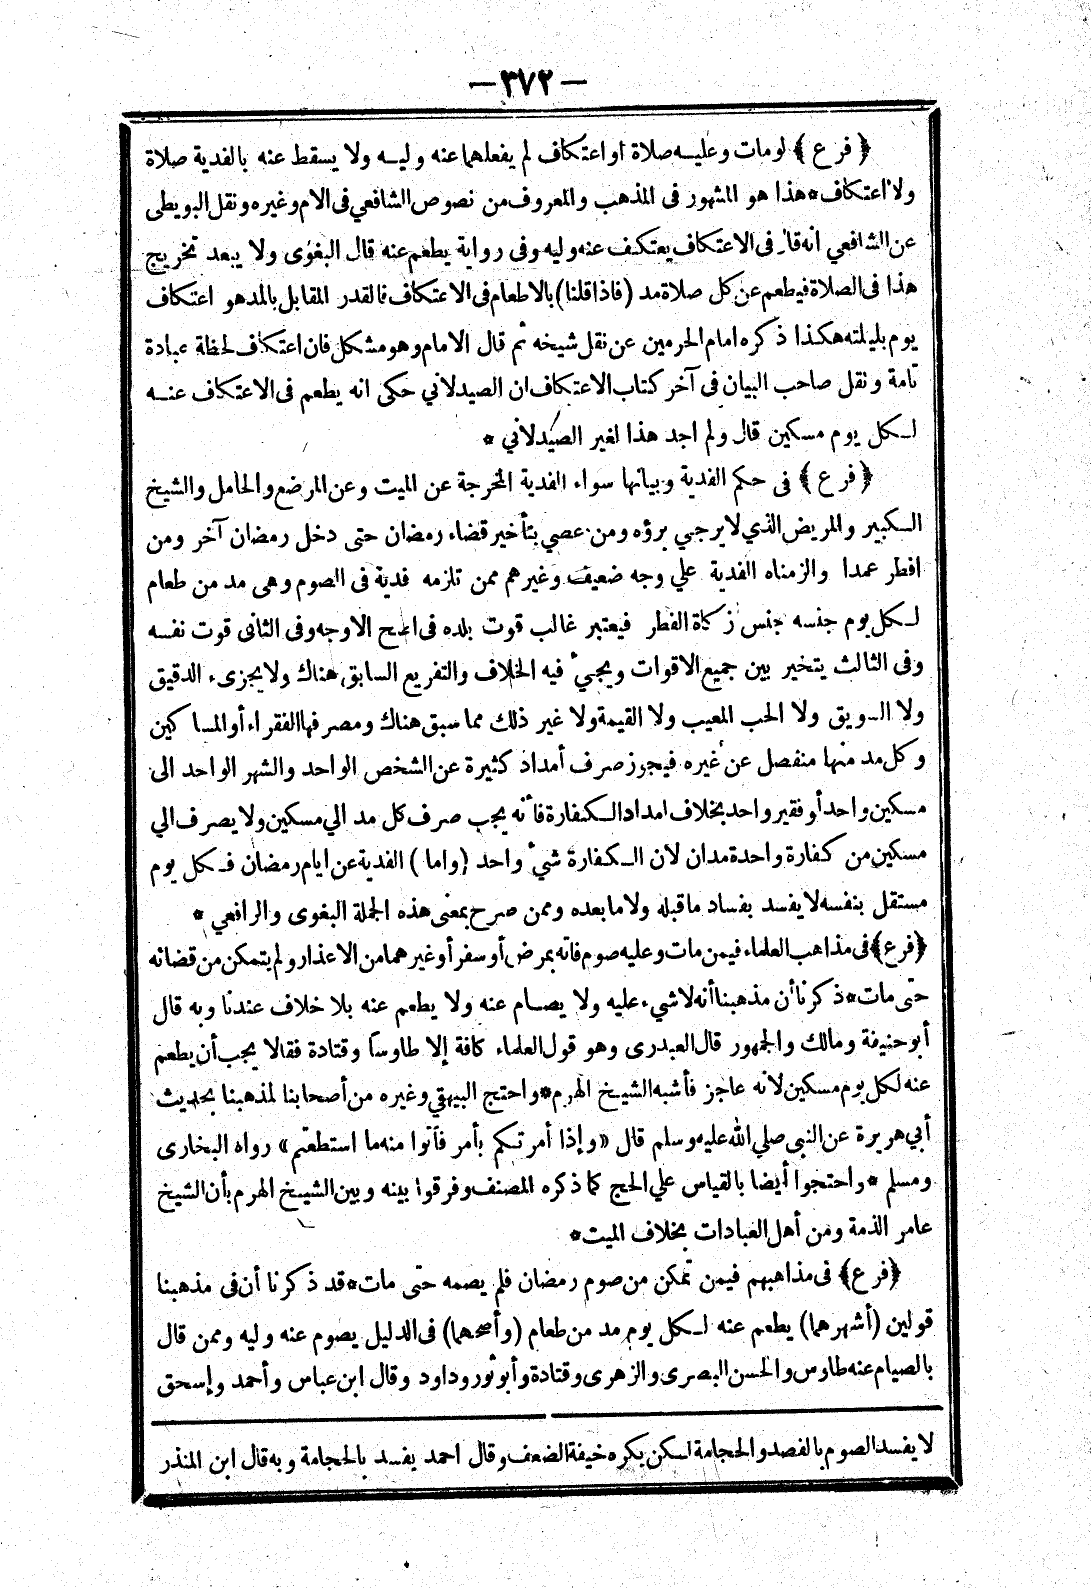 — ٣٧٢ —
﴿ فرع ﴾ لو مات وعليه صلاة أو اعتكاف لم يفعلهما عنه وليه ولا يسقط عنه بالفدية صلاة
ولا اعتكاف * هذا هو المشهور فى المذهب والمعروف من نصوص الشافعي فى الام وغيره ونقل البويطى
عن الشافعي انه قال فى الاعتكاف يعتكف عنه وليه وفى رواية يطعم عنه قال البغوى ولا يبعد تخريج
هذا فى الصلاة فيطعم عن كل صلاة مد (فاذا قلنا) بالاطعام فى الاعتكاف فالقدر المقابل بالمد هو اعتكاف
يوم بليلته هكذا ذكره امام الحرمين عن نقل شيخه ثم قال الامام وهو مشكل فان اعتكاف لحظة عبادة
تامة ونقل صاحب البيان فى آخر كتاب الاعتكاف ان الصيدلاني حكى انه يطعم فى الاعتكاف عنه
لكل يوم مسكين قال ولم اجد هذا لغير الصيدلاني *
﴿ فرع ﴾ فى حكم الفدية وبيانها سواء الفدية المخرجة عن الميت وعن المرضع والحامل والشيخ
الكبير والمريض الذي لا يرجي برؤه ومن عصي بتأخير قضاء رمضان حتى دخل رمضان آخر ومن
افطر عمدا والزمناه الفدية علي وجه ضعيف وغيرهم ممن تلزمه فدية فى الصوم وهى مد من طعام
لكل يوم جنسه جنس زكاة الفطر فيعتبر غالب قوت بلده فى اصح الاوجه وفى الثانى قوت نفسه
وفى الثالث يتخير بين جميع الاقوات ويجيء فيه الخلاف والتفريع السابق هناك ولا يجزىء الدقيق
ولا السويق ولا الحب المعيب ولا القيمة ولا غير ذلك مما سبق هناك ومصرفها الفقراء أو المساكين
وكل مد منها منفصل عن غيره فيجوز صرف أمداد كثيرة عن الشخص الواحد والشهر الواحد الى
مسكين واحد أو فقير واحد بخلاف امداد الكفارة فأنه يجب صرف كل مد الي مسكين ولا يصرف الي
مسكين من كفارة واحدة مدان لان الكفارة شيء واحد (واما) الفدية عن ايام رمضان فكل يوم
مستقل بنفسه لا يفسد بفساد ما قبله ولا ما بعده وممن صرح بمعنى هذه الجملة البغوى والرافعي *
﴿فرع﴾ فى مذاهب العلماء فيمن مات وعليه صوم فاته بمرض أو سفر أو غيرهما من الاعذار ولم يتمكن من قضائه
حتى مات * ذكرنا أن مذهبنا أنه لا شيء عليه ولا يصام عنه ولا يطعم عنه بلا خلاف عندنا وبه قال
أبو حنيفة ومالك والجمهور قال العبدرى وهو قول العلماء كافة إلا طاوسا وقتادة فقالا يجب أن يطعم
عنه لكل يوم مسكين لأنه عاجز فأشبه الشيخ الهرم * واحتج البيهقي وغيره من أصحابنا لمذهبنا بحديث
أبي هريرة عن النبى صلي الله عليه وسلم قال « وإذا أمرتكم بأمر فأتوا منه ما استطعتم » رواه البخارى
ومسلم * واحتجوا أيضا بالقياس علي الحج كما ذكره المصنف وفرقوا بينه وبين الشيخ الهرم بأن الشيخ
عامر الذمة ومن أهل العبادات بخلاف الميت *
﴿فرع﴾ فى مذاهبهم فيمن تمكن من صوم رمضان فلم يصمه حتى مات * قد ذكرنا أن فى مذهبنا
قولين (أشهرهما) يطعم عنه لكل يوم مد من طعام (وأصحهما) فى الدليل يصوم عنه وليه وممن قال
بالصيام عنه طاوس والحسن البصرى والزهرى وقتادة وأبو ثور وداود وقال ابن عباس وأحمد وإسحق
لا يفسد الصوم بالفصد والحجامة لكن يكره خيفة الضعف وقال احمد يفسد بالحجامة وبه قال ابن المنذر